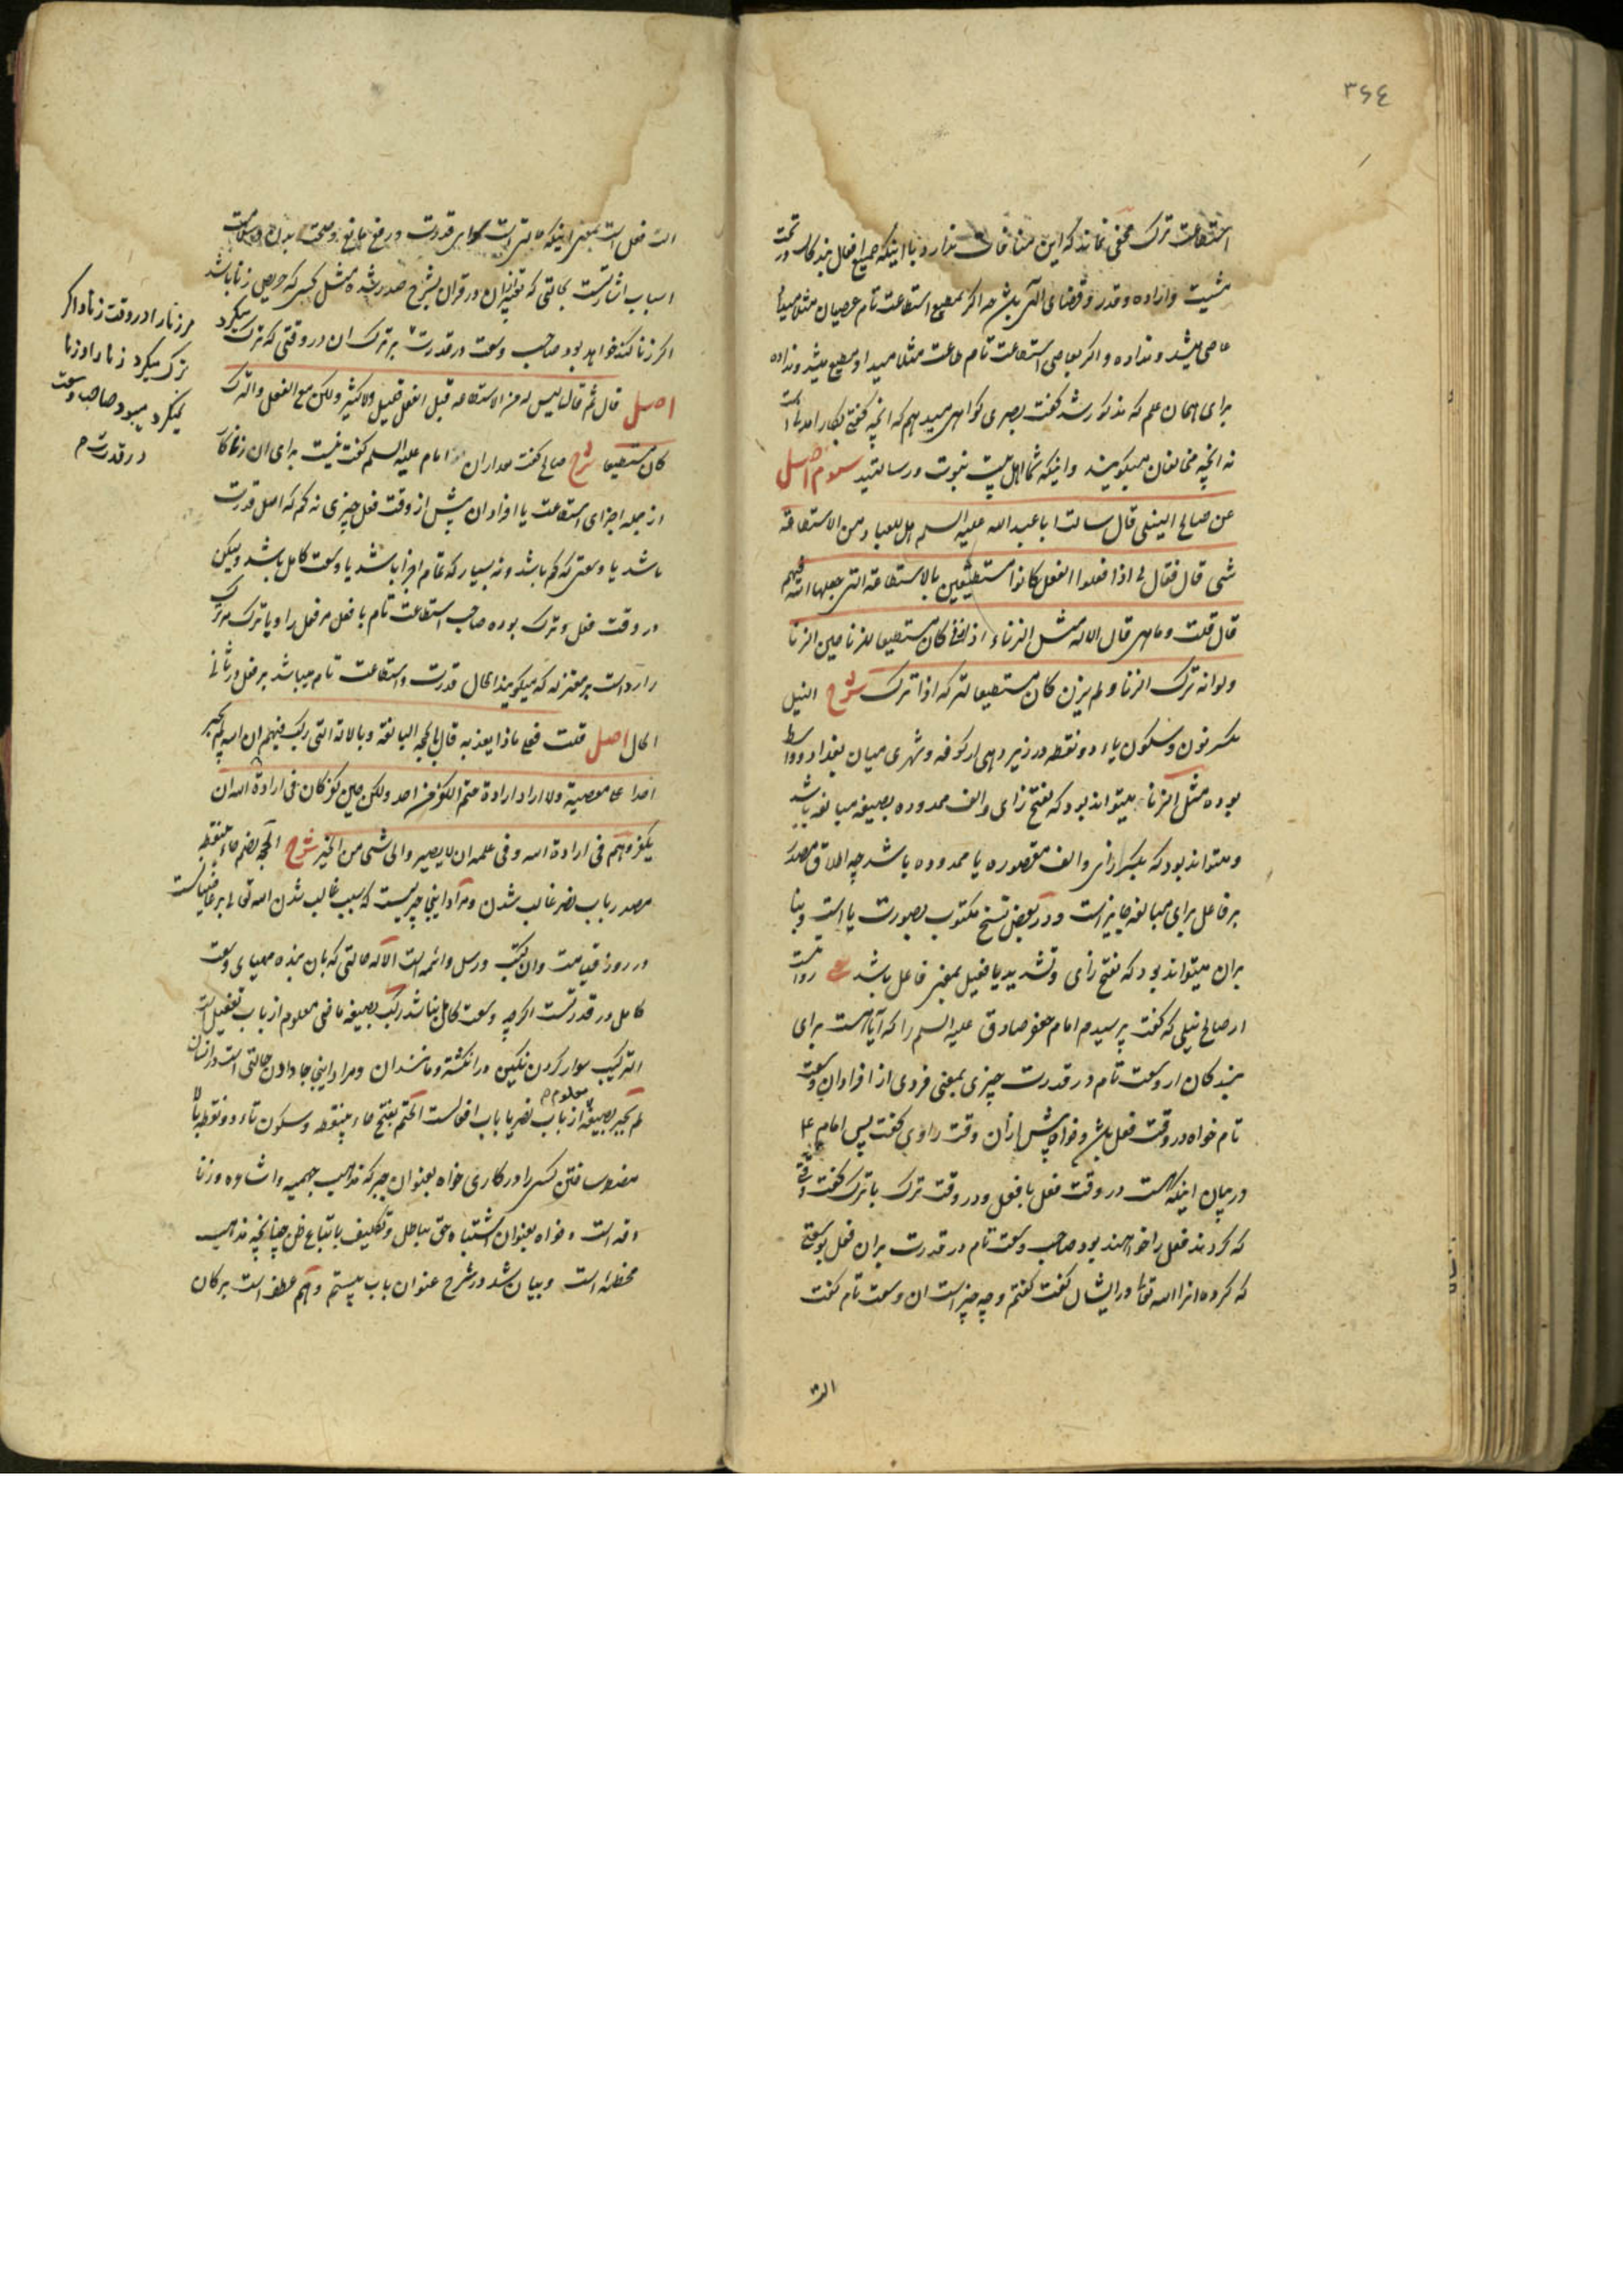 ۳۶٤
استطاعت ترک مخفی نماند که این منافات ندارد با اینکه جمیع افعال بندکان در تحت
مشیت و اراده و قدر و قضای الهی باشد چه اکر بمطیع استطاعت تام عصیان مثلا میداد
عاصی میشد و نداده و اکر بعاصی استطاعت تام طاعت مثلا میداد مطیع میشد و نداده
برای همان علم که مذکور شد کفت بصری کواهی میدهم که آنچه کفتی بکار آمدنی است
نه آنچه مخالفان میکویند و اینکه شما اهل بیت نبوت و رسالتید سوم اصل
عن صالح النیلی قال سالت ابا عبد الله علیه السلم هل للعباد من الاستطاعة
شی قال فقال لی اذا فعلوا الفعل کانوا مستطیعین بالاستطاعة التی جعلها الله فیهم
قال قلت و ما هی قال الالة مثل الزناء اذا زنی کان مستطیعا للزنا حین الزنا
و لو انه ترک الزنا و لم یزن کان مستطیعا لترکه اذا ترک شرح النیل
بکسر نون و سکون یاء دو نقطه در زیر دهی از کوفه و شهری میان بغداد و واسط
بوده مثل الزنا میتواند بود که بفتح زای و الف ممدوده بصیغه مبالغه باشد
و میتواند بود که بکسر زای و الف مقصوره یا ممدوده باشد چه اطلاق مصدر
بر فاعل برای مبالغه جایز است و در بعض نسخ مکتوب بصورت یا است و بنا
بران میتواند بود که بفتح زای و تشدید یا فعیل بمعنی فاعل باشد یعنی روایت است
از صالح نیلی که کفت پرسیدم امام جعفر صادق علیه السلم را که آیا هست برای
بندکان از وسعت تام در قدرت چیزی بمعنی فردی از افراد ان وسعت
تام خواه در وقت فعل باشد و خواه پیش از آن وقت راوی کفت پس امام ع
در بیان اینکه هست در وقت فعل با فعل و در وقت ترک با ترک کفت وقتی
که کردند فعل را خواهند بود صاحب وسعت تام در قدرت بران فعل بوسعتی
که کرده انرا الله تعالی در ایشان کفت کفتم و چه چیز است ان وسعت تام کفت
الت
الت فعل است بمعنی اینکه حالتی است
اسباب اشارتست بحالتی که تعبیر ان در قران بشرح صدر شده مثل کسی که حریص زنا باشد
اکر زنا کند خواهد بود صاحب وسعت در قدرت بر ترک ان در وقتی که ترک میکرد
اصل قال ثم قال لیس له من الاستطاعة قبل الفعل قلیل و لا کثیر و لکن مع الفعل و الترک
کان مستطیعا شرح صالح کفت بعد از ان امام علیه السلم کفت نیست برای ان زناکار
از جمله اجزای استطاعت یا افراد ان پیش از وقت فعل چیزی نه کم که اصل قدرت
باشد یا وسعتی که کم باشد و نه بسیار که تمام اجزا باشد یا وسعت کامل باشد و لیکن
در وقت فعل و ترک بوده صاحب استطاعت تام با فعل مر فعل را و یا ترک مر ترک
را رد است بر معتزله که میکویند الحال قدرت و استطاعت تام میباشد بر فعل در ثانی
الحال اصل قلت فعلی ماذا یعذبه قال بالحجة البالغة و بالالة التی رکب فیهم ان الله لم یجبر
احدا علی معصیة و لا اراد ارادة حتم الکفر من احد و لکن حین کفر کان فی ارادة الله ان
یکفر و هم فی ارادة الله و فی علمه ان لا یصیروا الی شی من الخیر شرح الحجة بضم حاء بینقطه
مصدر باب نصر غالب شدن و مراد اینجا چیزیست که سبب غالب شدن الله تعالی بر عاصیانست
در روز قیامت و ان کتب و رسل و ائمه است الاله حالتی که بان بنده مهیای وسعت
کامل در قدرتست اکرچه وسعت کامل نباشد رکب بصیغه ماضی معلوم از باب تفعیل است
الترکیب سوار کردن نکین در انکشتر و مانند ان و مراد اینجا جا دادن حالتی است در انسان
لم یجبر بصیغه معلوم از باب نصر یا باب افعالست الحتم بفتح حاء بینقطه و سکون تاء دو نقطه بالا
مضطر ساختن کسی را در کاری خواه بعنوان جبر که مذهب جهمیه و اشاعره و زنا
دقه است و خواه بعنوان اشتباه حق بباطل و تکلیف باتباع ظن چنانچه مذهب
مخطئه است و بیان شد در شرح عنوان باب بیستم و هم عطف است بر کان
مر زنا را در وقت زنا و اکر
ترک میکرد زنا را و زنا
نمیکرد میبود صاحب وسعت
در قدرت م